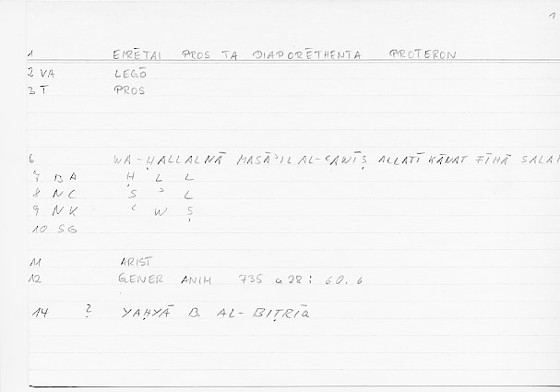 1
1 EIRĒTAI PROS TA DIAPORĒTHENTA PROTERON
2 VA LEGŌ
3 T PROS
6 WA-ḤALLALNĀ MASĀʾIL AL-ʿAWĪṢ ALLATĪ KĀNAT FĪHĀ
7 BA Ḥ L L
8 NC S ʾ L
9 NK ʿ W Ṣ
10 SG
11 ARIST
12 GENER ANIM 735 a 28 : 60.6
14 ? YAḤYĀ B. AL-BIṬRĪQ